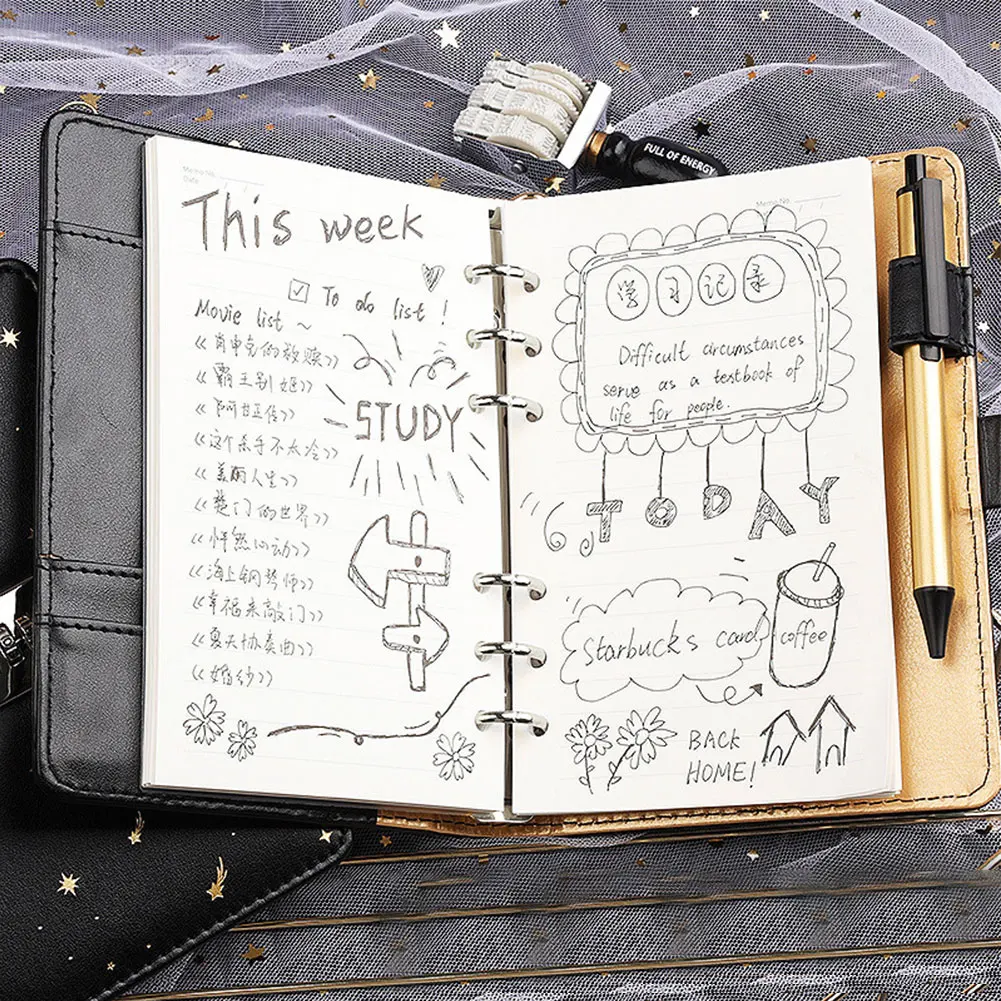 Memo No.
Date / /
This week
☑ To do list !
Movie list ~
《肖申克的救赎》
《霸王别姬》
《阿甘正传》
《这个杀手不太冷》
《美丽人生》
《楚门的世界》
《怦然心动》
《海上钢琴师》
《幸福来敲门》
《夏天协奏曲》
《婚纱》
STUDY
FULL OF ENERGY
Memo No.
学习记录
Difficult circumstances
serve as a textbook of
life for people.
TODAY
Starbucks card
coffee
BACK
HOME!